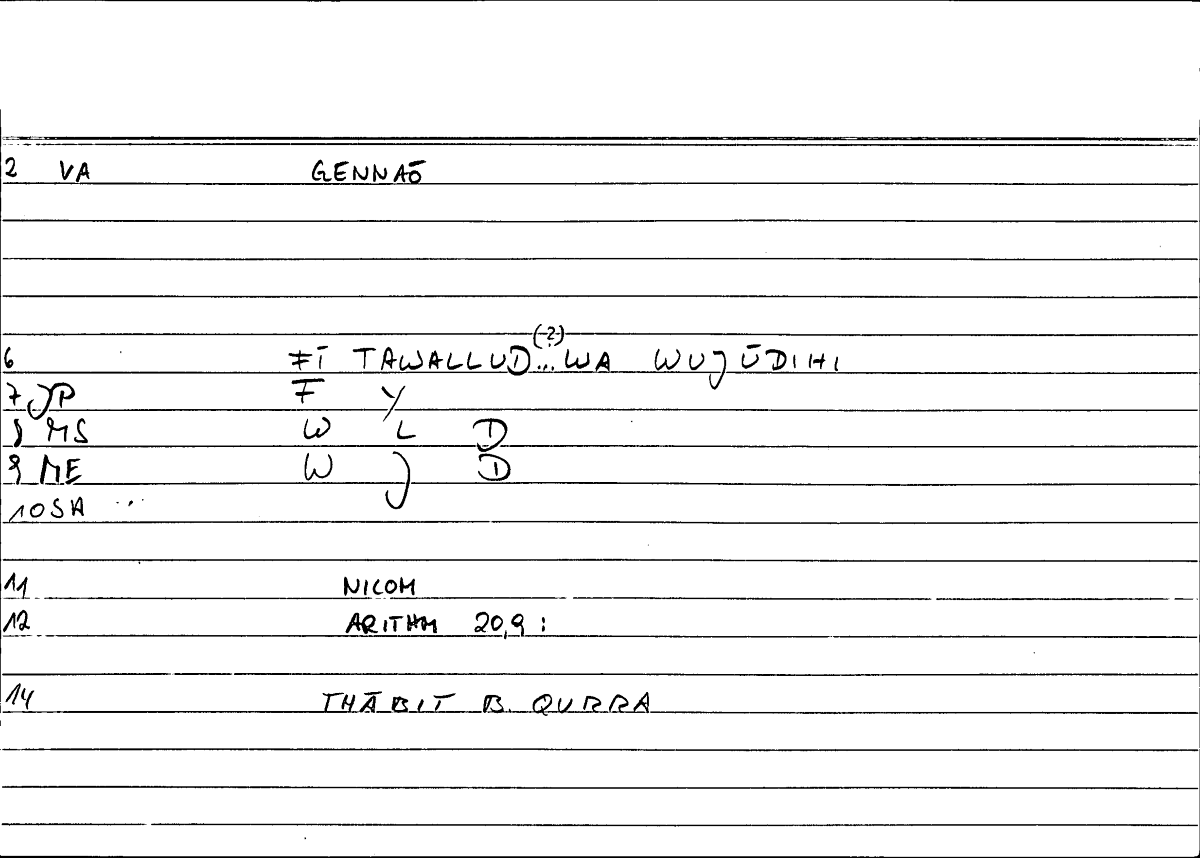 2 VA GENNAŌ
(?)
6 FĪ TAWALLUD...WA WUJŪDIHI
7 JP F Y
8 MS W L D
9 ME W J D
10 SA ...
11 NICOM
12 ARITHM 20,9 :
14 THĀBIT B. QURRA